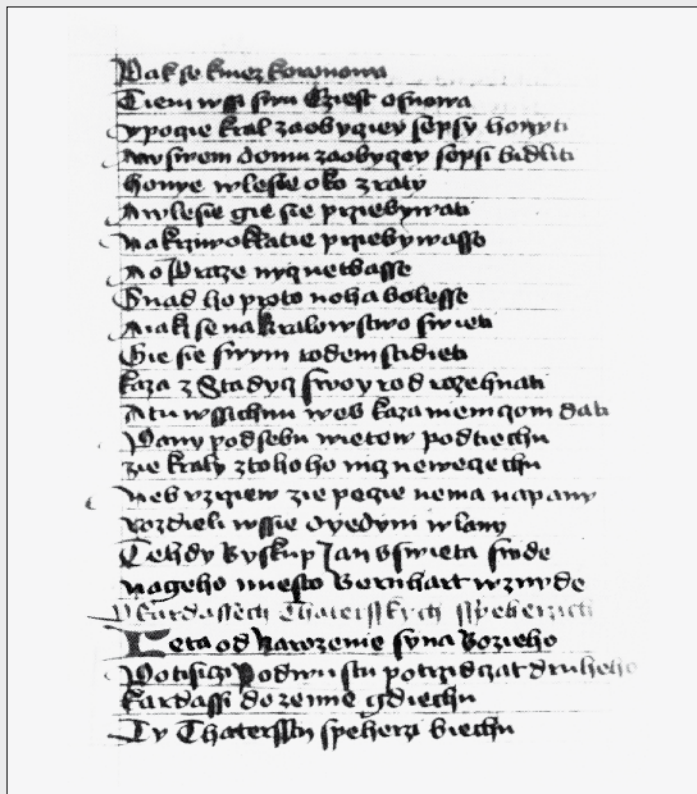 Pak se knez korunowa
Tiem wssi swu Cziest osnowa
ypogie kral zaobygiey sepsy honyti
Anyswem domu zaobygey sepsi bidliti
honye wlesie oko zraty
Awlesie gie sie przebywati
Nakrziwoklatie przebywasse
Ao Praze nyqnetbasse
Snad ho proto noha bolesse
Aiakz se na kralowstwo swieti
Gie sie swym rodem stidieti
kaza z Stadycz swoy rod rozehnati
Atu wssichnu wes kaza niemczom dati
Pany podsebu nietow podtiechu
zie kraly ztoho ho nycz newegechu
Neb vzrziew zie pecie nema napany
rozdieli wssie dyedyni wlany
Tehdy Byskup Jan sswieta snide
nageho miesto Bernhart wznyde
O kardassiech Thatersskych sspeherzich
Leta od Narozenie syna Bozieho
Potisiczi Podwustu potrzidczat druheho
kardassi do zemie gdiechu
Ty Thatersszy speherzi biechu